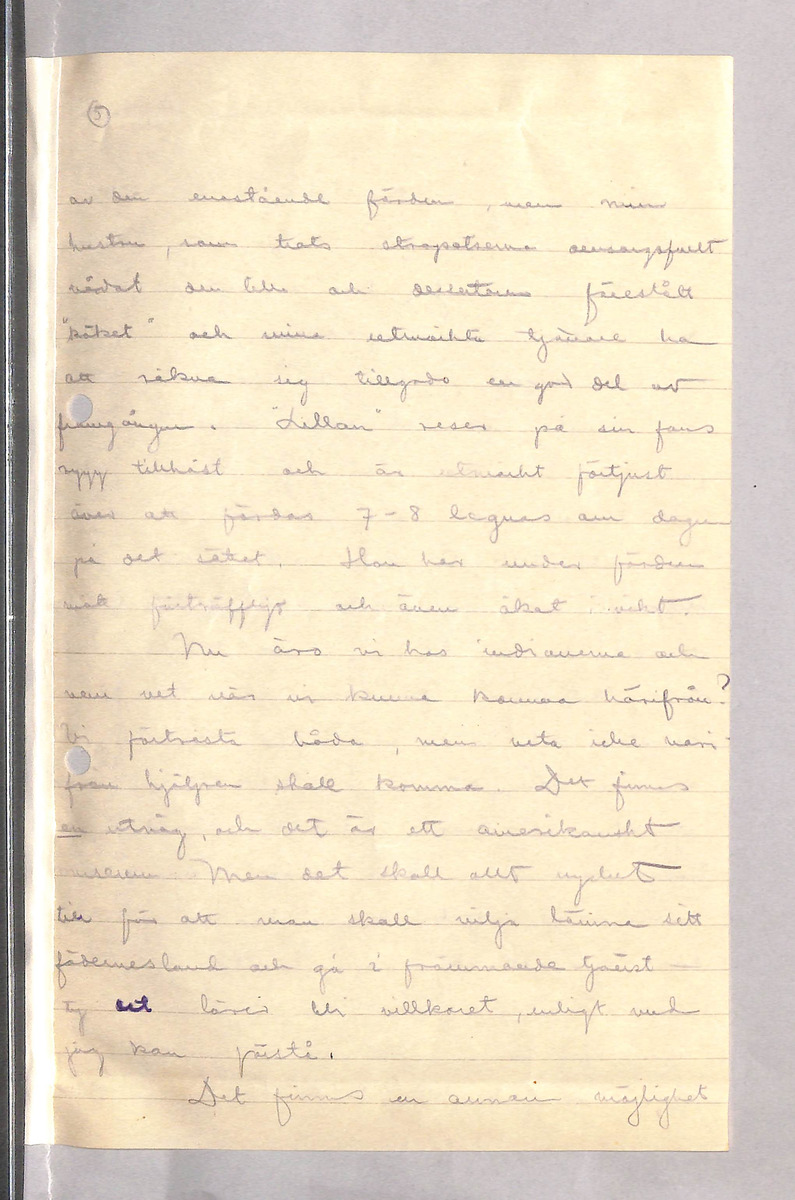 5
av den enastående färden, men min
hustru, som trots strapatserna omsorgsfullt
vårdat den lilla och dessutom förestått
"köket" och mina utmärkta tjänare ha
att räkna sig tillgodo en god del av
framgången. "Lillan" reser på sin fars
rygg till häst och är utmärkt förtjust
över att färdas 7-8 leguas om dagen
på det sättet. Hon har under färden
mått förträffligt och även ökat i vikt.
Nu äro vi hos indianerna och
vem vet när vi kunna komma härifrån?
Vi förtrösta båda, men veta icke vari-
från hjälpen skall komma. Det finnes
en utväg, och det är ett amerikanskt
museum. Men det skall allt mycket
till för att man skall vilja lämna sitt
fädernesland och gå i främmande tjänst —
ty det lärer bli villkoret, enligt vad
jag kan förstå.
Det finnes en annan möjlighet